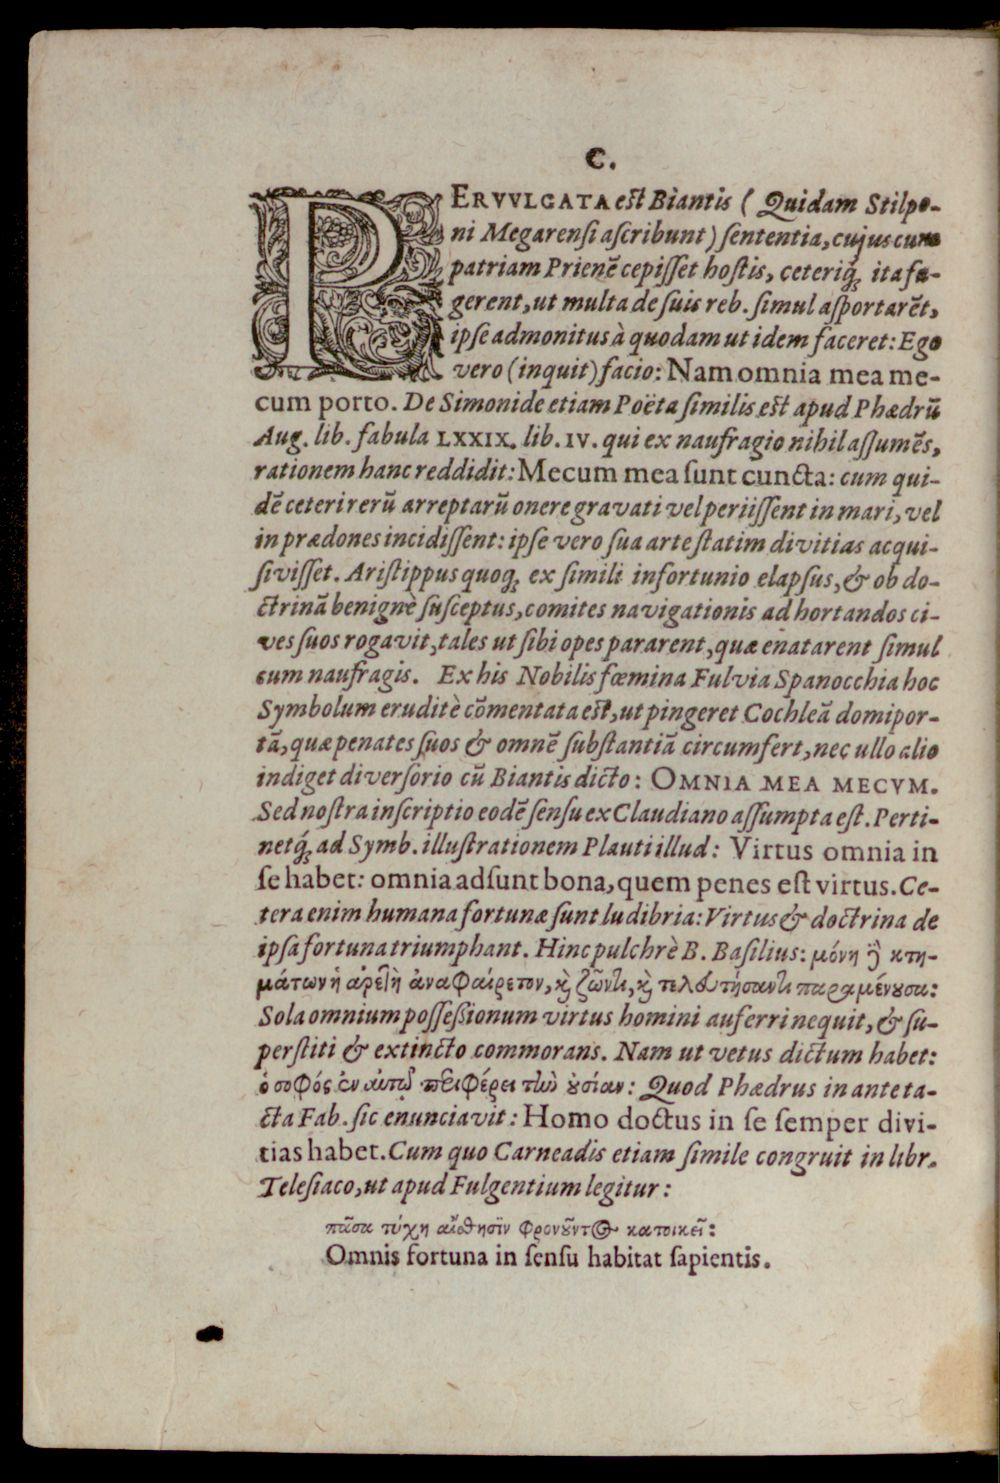 C.
PERVVLGATA est Biantis (Quidam Stilpo-
ni Megarensi ascribunt) sententia, cujus cum
patriam Prienē cepisset hostis, ceteriq́; ita fu-
gerent, ut multa de suis reb. simul asportarēt,
ipse admonitus à quodam ut idem faceret: Ego
vero (inquit) facio: Nam omnia mea me-
cum porto. De Simonide etiam Poëta similis est apud Phædrū
Aug. lib. fabula LXXIX. lib. IV. qui ex naufragio nihil assumēs,
rationem hanc reddidit: Mecum mea sunt cuncta: cum qui-
dē ceteri rerū arreptarū onere gravati vel periissent in mari, vel
in prædones incidissent: ipse vero sua arte statim divitias acqui-
sivisset. Aristippus quoq; ex simili infortunio elapsus, & ob do-
ctrinā benignè susceptus, comites navigationis ad hortandos ci-
ves suos rogavit, tales ut sibi opes pararent, quæ enatarent simul
cum naufragis. Ex his Nobilis fœmina Fulvia Spanocchia hoc
Symbolum eruditè cōmentata est, ut pingeret Cochleā domipor-
tā, quæ penates suos & omnē substantiā circumfert, nec ullo alio
indiget diversorio cū Biantis dicto: OMNIA MEA MECVM.
Sed nostra inscriptio eodē sensu ex Claudiano assumpta est. Perti-
netq́; ad Symb. illustrationem Plauti illud: Virtus omnia in
se habet: omnia adsunt bona, quem penes est virtus. Ce-
tera enim humana fortunæ sunt ludibria: Virtus & doctrina de
ipsa fortuna triumphant. Hinc pulchrè B. Basilius: μόνη ϳ κτη-
μάτων ἡ ἀρετὴ ἀναφαίρετον, κỳ ζῶντι, κỳ τελευτήσαντι παραμένουσα:
Sola omnium possessionum virtus homini auferri nequit, & su-
perstiti & extincto commorans. Nam ut vetus dictum habet:
ὁ σοφός ἐν αὐτῷ περιφέρει τὴν οὐσίαν: Quod Phædrus in anteta-
cta Fab. sic enunciavit: Homo doctus in se semper divi-
tias habet. Cum quo Carneadis etiam simile congruit in libr.
Telesiaco, ut apud Fulgentium legitur:
πᾶσα τύχη αἴσθησϊν φρονοῦντος κατοικεῖ:
Omnis fortuna in sensu habitat sapientis.